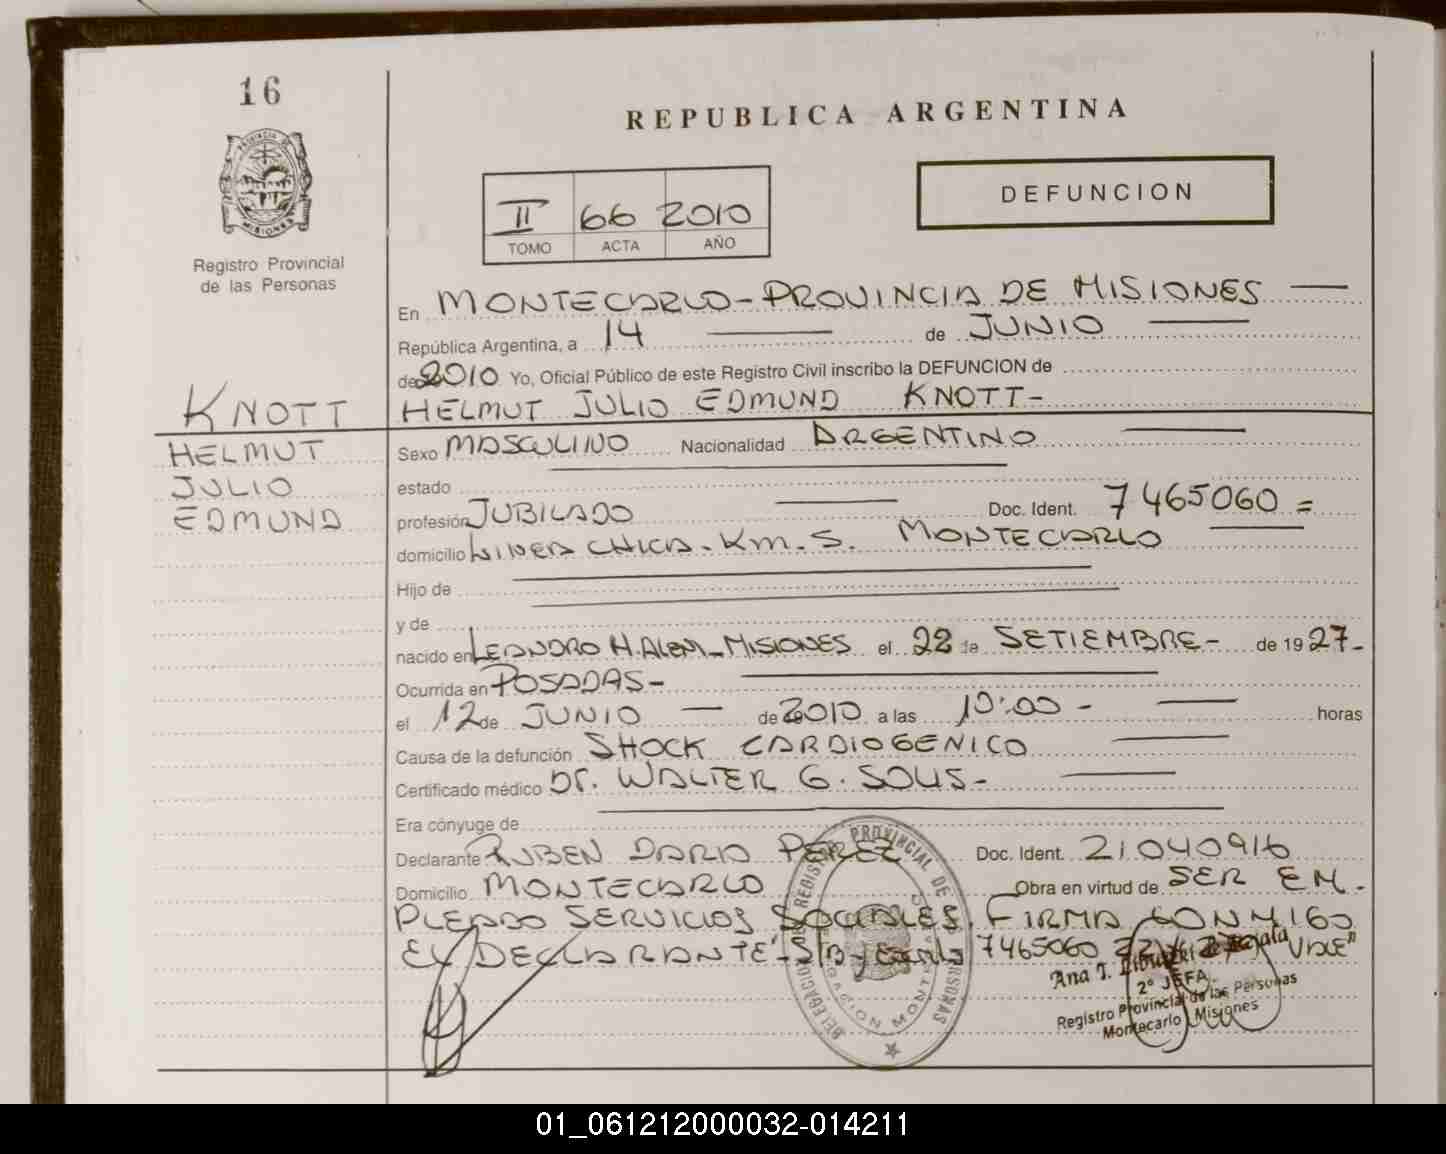 16
REPUBLICA ARGENTINA
DEFUNCION
II 66 2010
TOMO ACTA AÑO
PROVINCIA DE
MISIONES
Registro Provincial
de las Personas
En MONTECARLO - PROVINCIA DE MISIONES
República Argentina, a 14 de JUNIO
de 2010 Yo, Oficial Público de este Registro Civil inscribo la DEFUNCION de
KNOTT
HELMUT JULIO EDMUND KNOTT-
HELMUT
JULIO
EDMUND
Sexo MASCULINO Nacionalidad ARGENTINO
estado
profesión JUBILADO Doc. Ident. 7465060 =
domicilio LINEA CHICA. Km. 5. MONTECARLO
Hijo de
y de
nacido en LEANDRO N. ALEM - MISIONES el 22 de SETIEMBRE - de 1927-
Ocurrida en POSADAS-
el 12 de JUNIO de 2010 a las 10:00 - horas
Causa de la defunción SHOCK CARDIOGENICO
Certificado médico Dr. WALTER G. SOLIS-
Era cónyuge de
Declarante RUBEN DARIO PEREZ Doc. Ident. 21040916
Domicilio MONTECARLO Obra en virtud de SER EM-
PLEADO SERVICIOS SOCIALES. FIRMA CONMIGO
EL DECLARANTE- S/B 7465060 22 VALE"
DELEGACION REGISTRO PROVINCIAL DE PERSONAS
Ana T.
2° JEFA
Registro Provincial de las Personas
Montecarlo Misiones
01_061212000032-014211